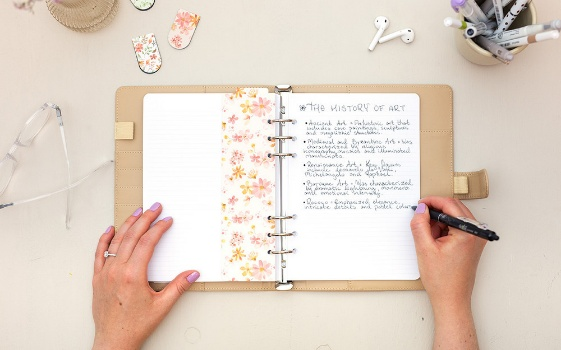 THE HISTORY OF ART
• Ancient Art - Prehistoric art that
includes cave paintings, sculptures
and megalithic structures.
• Medieval and Byzantine Art - was
characterized by religious
iconography, mosaics and illuminated
manuscripts.
• Renaissance Art - Key figures
include Leonardo da Vinci,
Michelangelo and Raphael.
• Baroque Art - Was characterized
by dramatic lighting, movement
and emotional intensity.
• Rococo - Emphasized elegance,
intricate details and pastel colors